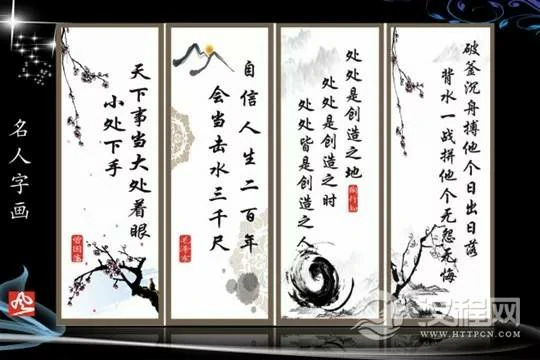 名人字画
天下事当大处着眼
小处下手
曾国藩
自信人生二百年
会当击水三千尺
毛泽东
处处是创造之地
处处是创造之时
处处皆是创造之人
陶行知
破釜沉舟搏他个日出日落
背水一战拼他个无怨无悔
汉程网
WWW.HTTPCN.COM